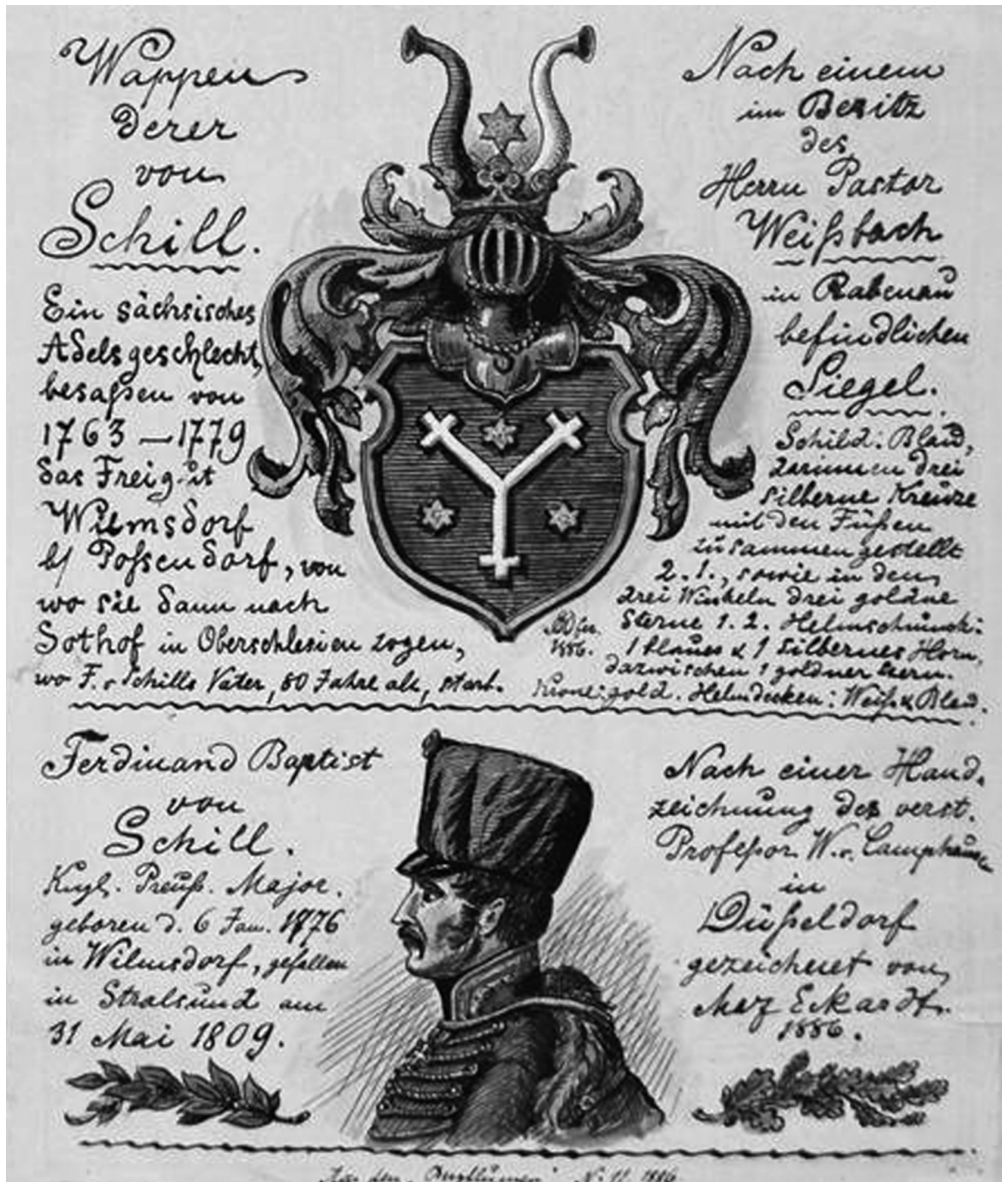 Wappen
derer
von
Schill.
Ein sächsisches
Adelsgeschlecht,
besaßen von
1763 – 1779
das Freigut
Wilmsdorf
b/ Possendorf, von
wo sie dann nach
Sothof in Oberschlesien zogen,
wo F. v Schills Vater, 80 Jahre alt, starb.
Nach einem
im Besitz
des
Herrn Pastor
Weißbach
in Rabenau
befindlichen
Siegel.
Schild: Blau,
darinnen drei
silberne Kreuze
mit den Füßen
zusammengestellt
2. 1., sowie in den
drei Winkeln drei goldne
Sterne 1. 2. Helmschmuck:
1 blaues & 1 silbernes Horn,
dazwischen 1 goldner Stern.
Krone: gold. Helmdecken: Weiß & Blau.
1886.
Ferdinand Baptist
von
Schill.
Kngl. Preuß. Major.
geboren d. 6 Jan. 1776
in Wilmsdorf, gefallen
in Stralsund am
31 Mai 1809.
Nach einer Hand-
zeichnung des verst.
Profeßor W. v. Camphausen
in
Düßeldorf
gezeichnet von
Max Eckardt.
1886.
Aus den N. 1886